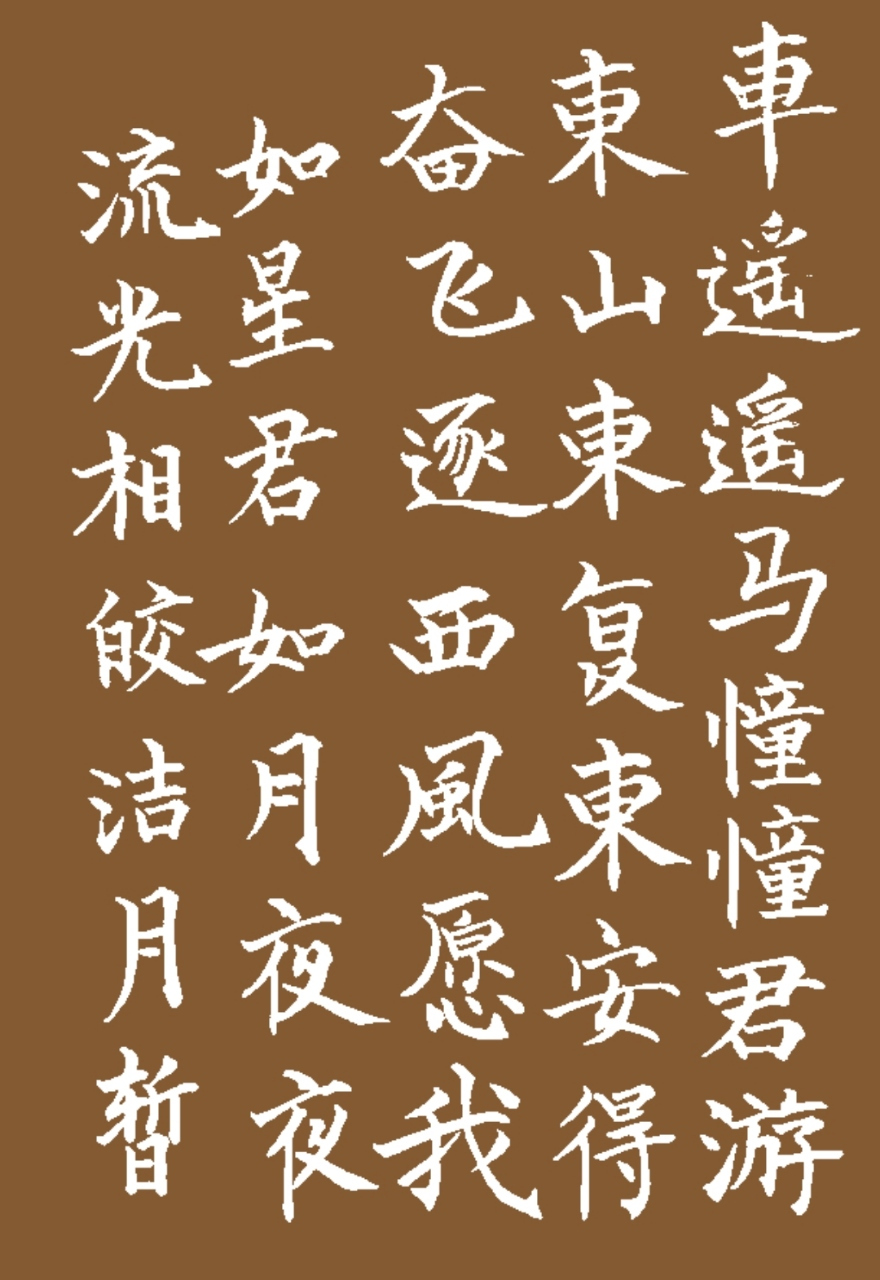 車遥遥马憧憧君游
東山東复東安得
奋飞逐西風愿我
如星君如月夜夜
流光相皎洁月暂